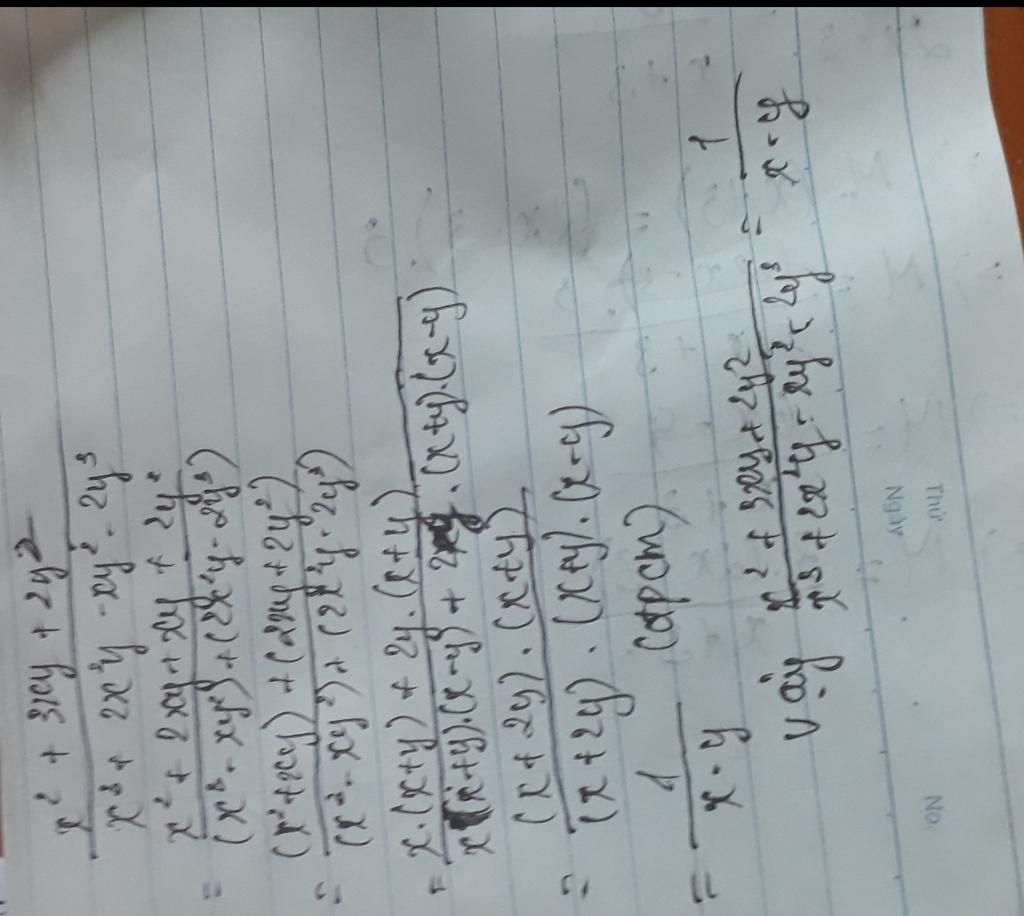 x² + 3xy + 2y² / x³ + 2x²y - xy² - 2y³
= x² + 2xy + xy + 2y² / (x³ - xy²) + (2x²y - 2y³)
= (x² + xy) + (2xy + 2y²) / (x³ - xy²) + (2x²y - 2y³)
= x.(x+y) + 2y.(x+y) / x(x+y).(x-y) + 2y.(x+y).(x-y)
= (x + 2y).(x+y) / (x + 2y).(x+y).(x-y)
= 1 / x - y (đpcm)
Vậy x² + 3xy + 2y² / x³ + 2x²y - xy² - 2y³ = 1 / x - y
Thứ
Ngày
No.